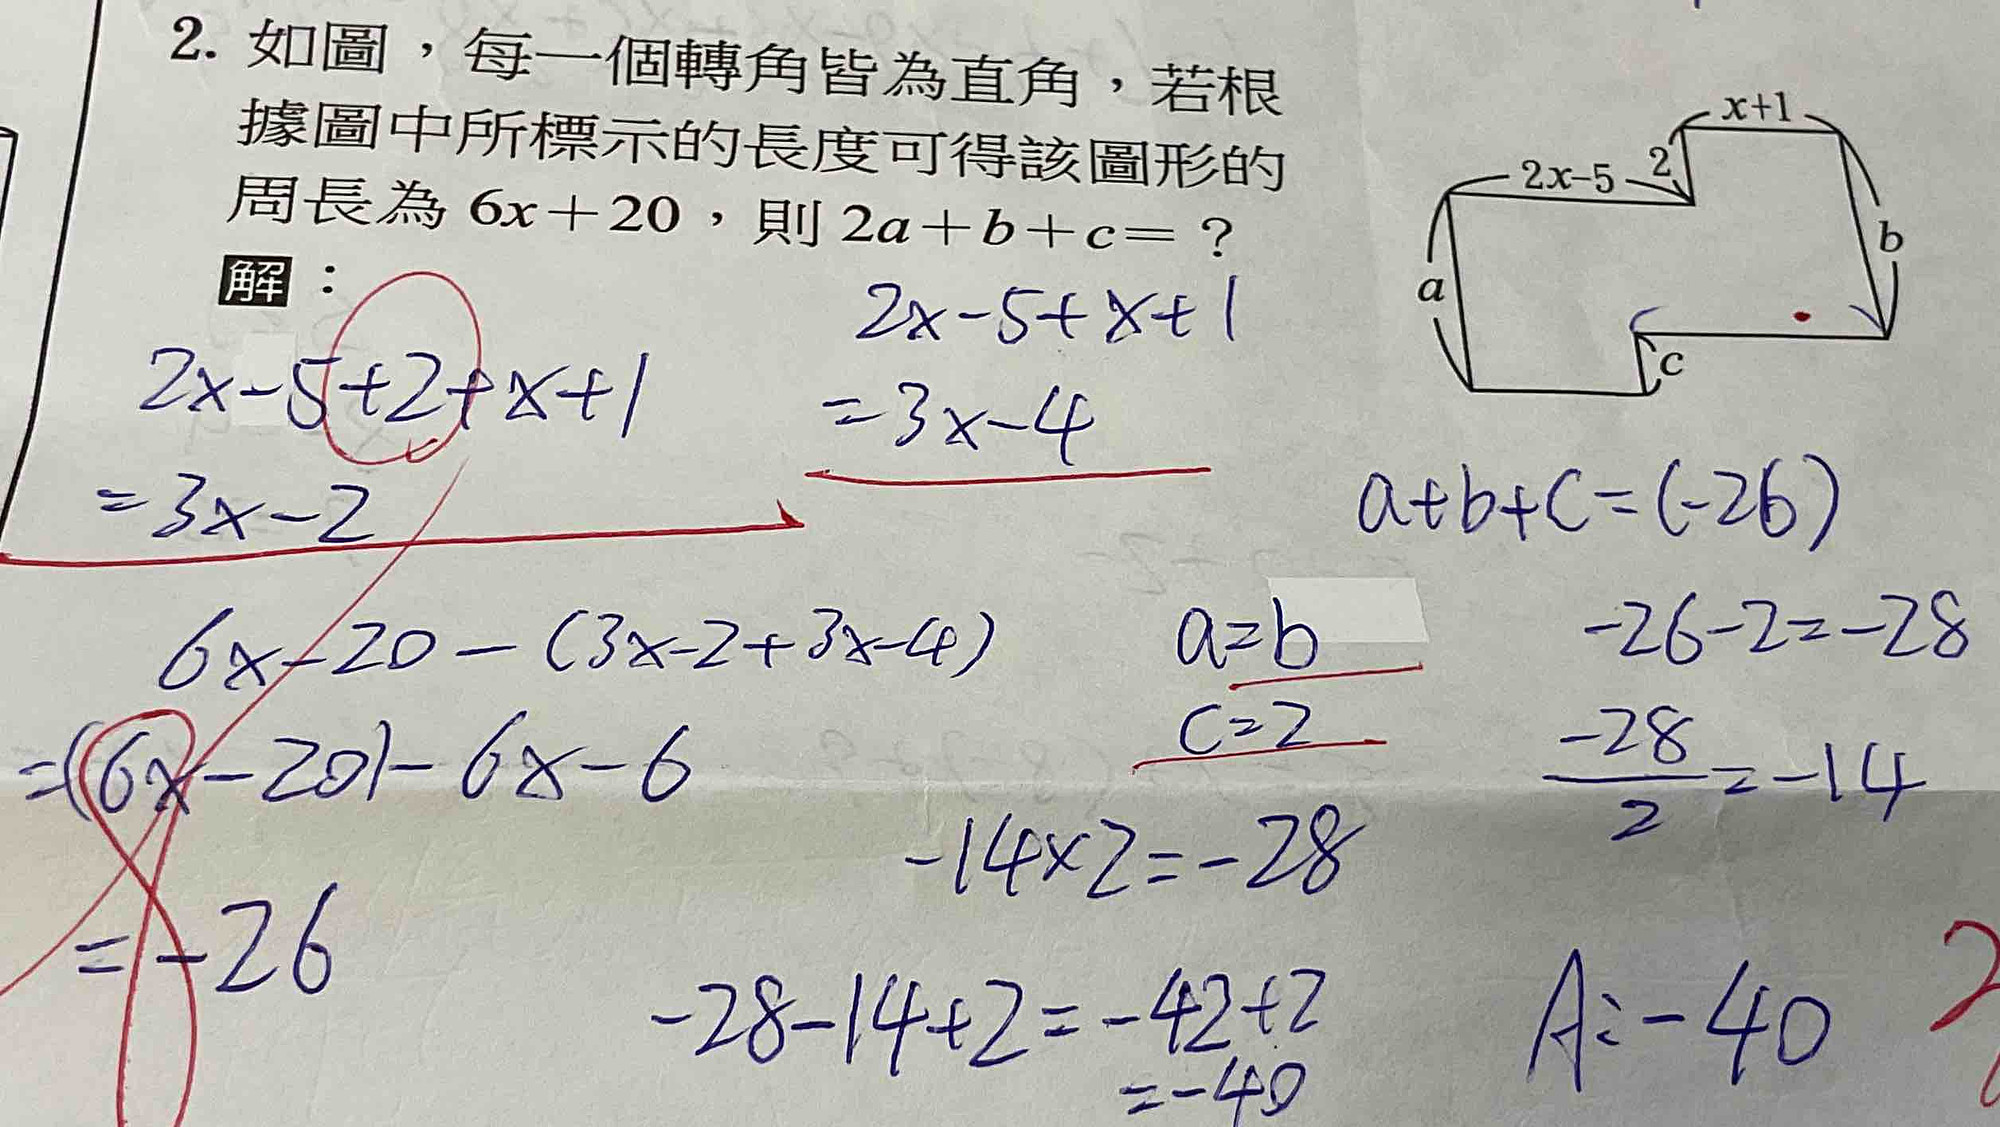 2. 如圖，每一個轉角皆為直角，若根
據圖中所標示的長度可得該圖形的
周長為 6x＋20，則 2a＋b＋c＝？
解：
x+1
2x−5
2
b
a
c
2x-5+2+x+1
=3x-2
2x-5+x+1
=3x-4
a+b+c=(-26)
6x-20-(3x-2+3x-4)
=(6x-20)-6x-6
=-26
a=b
c=2
-26-2=-28
-28/2=-14
-14×2=-28
-28-14+2=-42+2
=-40
A:-40